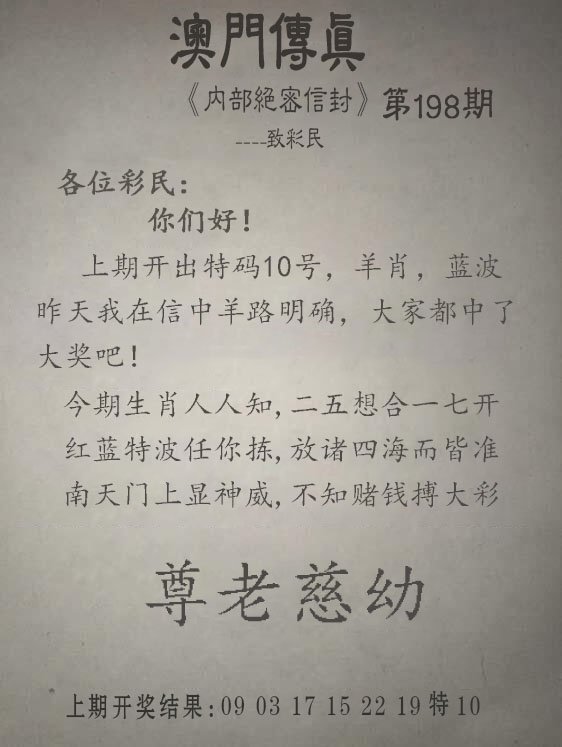 澳門傳眞
《内部絕密信封》第198期
----致彩民
各位彩民:
你们好!
上期开出特码10号，羊肖，蓝波
昨天我在信中羊路明确，大家都中了
大奖吧!
今期生肖人人知,二五想合一七开
红蓝特波任你拣,放诸四海而皆准
南天门上显神威,不知赌钱搏大彩
尊老慈幼
上期开奖结果:09 03 17 15 22 19特10